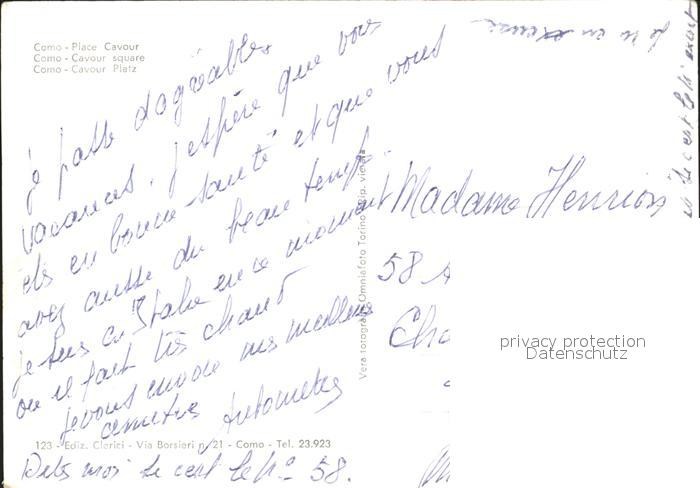 Como - Place Cavour
Como - Cavour square
Como - Cavour Platz
je passe d'agréables
vacances. j'espère que vous
ets en bonne santé et que vous
avez aussi du beau temps
je suis en Italie en ce moment
ou il fait très chaud
je vous envoie mes meilleurs
amitiés
Dites moi si c'est le No 58.
Madame Henrion
58 A
Cha
privacy protection
Datenschutz
Vera fotografia Omniafoto Torino
123 - Ediz. Clerici - Via Borsieri n. 21 - Como - Tel. 23.923